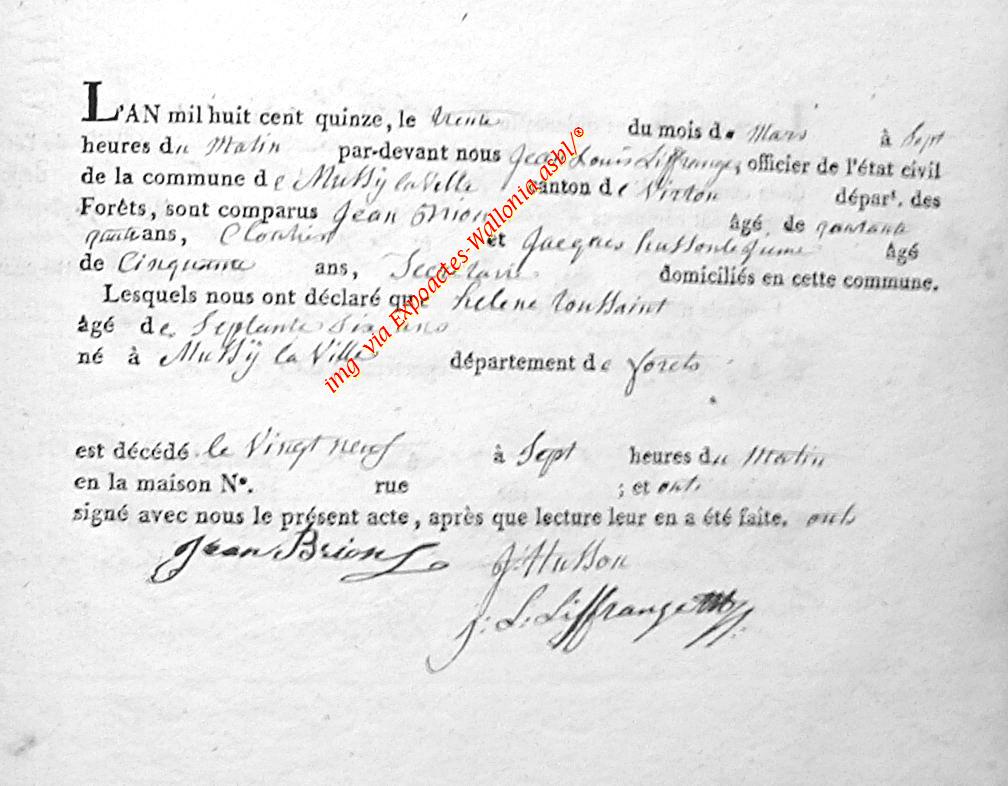 L'AN mil huit cent quinze, le trente du mois de Mars à Sept
heures du Matin par-devant nous Jean Louis Liffrange, officier de l'état civil
de la commune de Mussÿ la Ville canton de Virton dépar<sup>t</sup>. des
Forêts, sont comparus Jean Brion âgé de quarante
ans, et Jacques husson âgé
de Cinquante ans, Secretaire domiciliés en cette commune.
Lesquels nous ont déclaré que helene toussaint
âgé de Septante Six ans
né à Mussÿ la Ville département de forets
est décédé le Vingt neuf à Sept heures du Matin
en la maison N°. rue ; et onts
signé avec nous le présent acte, après que lecture leur en a été faite. onts
Jean Brion J: Husson
J: L: Liffrange
img via Expoactes-Wallonia.asbl/®